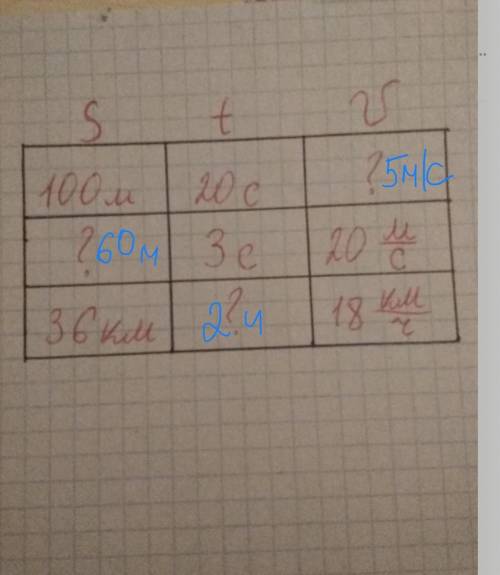 S t V
100м 20 с ? 5м/с
? 60м 3с 20 м/с
36 км 2?ч 18 км/ч